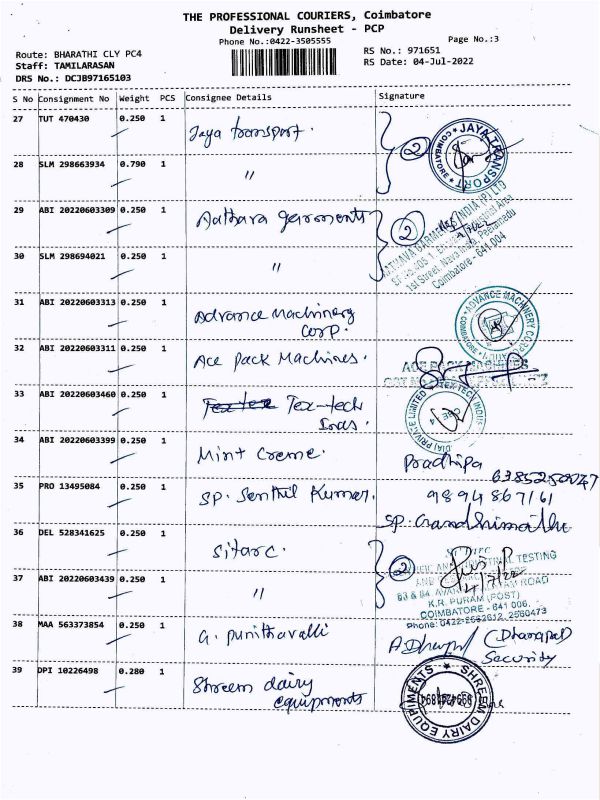 THE PROFESSIONAL COURIERS, Coimbatore
Delivery Runsheet - PCP
Phone No.:0422-3505555
Page No.:3
Route: BHARATHI CLY PC4
RS No.: 971651
Staff: TAMILARASAN
RS Date: 04-Jul-2022
DRS No.: DCJB97165103
S No Consignment No Weight PCS Consignee Details Signature
27 TUT 470430 0.250 1 Jaya transport. 2
JAYA TRANSPORT
COIMBATORE
28 SLM 298663934 0.790 1 "
29 ABI 20220603309 0.250 1 Aathava garments 2
1st Street, Nava India, Peelamedu
Coimbatore - 641 004
30 SLM 298694021 0.250 1 "
31 ABI 20220603313 0.250 1 Advance Machinery
Corp.
ADVANCE MACHINERY CORPORATION
32 ABI 20220603311 0.250 1 Ace Pack Machines.
ACE PACK MACHINES
33 ABI 20220603460 0.250 1 Tex-tech
Inds.
34 ABI 20220603399 0.250 1 Mint Creme. Pradhipa
6385250047
35 PRO 13495084 0.250 1 SP. Senthil Kumar. 9894867161
SP. Gandhimathi
36 DEL 528341625 0.250 1 Sitarc. 2
TESTING
4/7/22
ROAD
K.R. PURAM (POST)
COIMBATORE - 641 006.
Phone: 0422-2562612, 2560473
37 ABI 20220603439 0.250 1 "
38 MAA 563373854 0.250 1 G. Punithavalli (Dhanapal)
Security
39 DPI 10226498 0.280 1 Shreem dairy
equipments
SHREEM DAIRY EQUIPMENTS